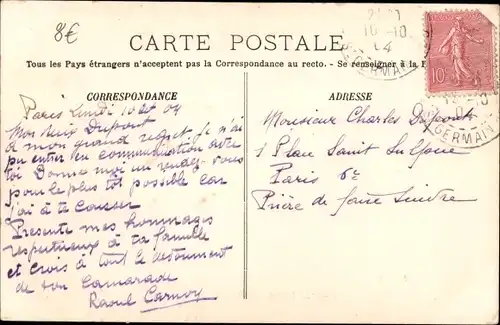 8€
CARTE POSTALE
Tous les Pays étrangers n'acceptent pas la Correspondance au recto. - Se renseigner à la
CORRESPONDANCE
Paris Lundi 10 Oct 04
Mon vieux Dupont
à mon grand regret je n'ai
pu entrer en communication avec
toi Donne moi un rendez-vous
pour le plus tôt possible car
j'ai à te causer
Présente mes hommages
respectueux à ta famille
et crois à tout le dévouement
de ton Camarade
Raoul Carnoy
ADRESSE
Monsieur Charles Dupont
1 Place Saint Sulpice
Paris 6e
Prière de faire suivre
10
10-10
04
GERMAIN
GERMAIN